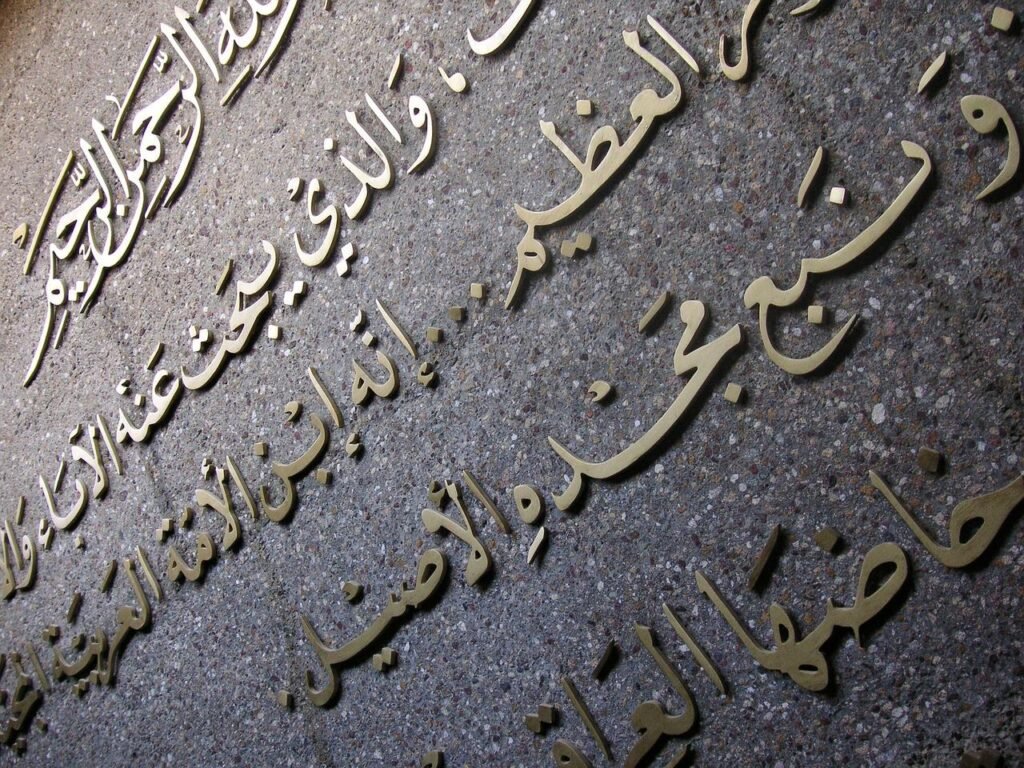 الله الرَّحمنِ الرَّحيمِ
، وَالذي يبحث عَنْه الآبَاء
العظيم .. إنه ابن الأمَة العَربيَّة
وَنَبع مَجْدهِ الأصيْل.